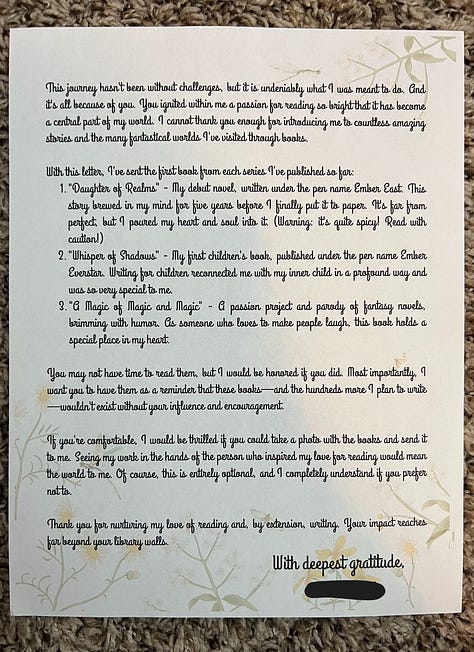 This journey hasn't been without challenges, but it is undeniably what I was meant to do. And
it's all because of you. You ignited within me a passion for reading so bright that it has become
a central part of my world. I cannot thank you enough for introducing me to countless amazing
stories and the many fantastical worlds I've visited through books.
With this letter, I've sent the first book from each series I've published so far:
1. "Daughter of Realms" - My debut novel, written under the pen name Ember East. This
story brewed in my mind for five years before I finally put it to paper. It's far from
perfect, but I poured my heart and soul into it. (Warning: it's quite spicy! Read with
caution!)
2. "Whisper of Shadows" - My first children's book, published under the pen name Ember
Everstar. Writing for children reconnected me with my inner child in a profound way and
was so very special to me.
3. "A Magic of Magic and Magic" - A passion project and parody of fantasy novels,
brimming with humor. As someone who loves to make people laugh, this book holds a
special place in my heart.
You may not have time to read them, but I would be honored if you did. Most importantly, I
want you to have them as a reminder that these books—and the hundreds more I plan to write
—wouldn't exist without your influence and encouragement.
If you're comfortable, I would be thrilled if you could take a photo with the books and send it
to me. Seeing my work in the hands of the person who inspired my love for reading would mean
the world to me. Of course, this is entirely optional, and I completely understand if you prefer
not to.
Thank you for nurturing my love of reading and, by extension, writing. Your impact reaches
far beyond your library walls.
With deepest gratitude,